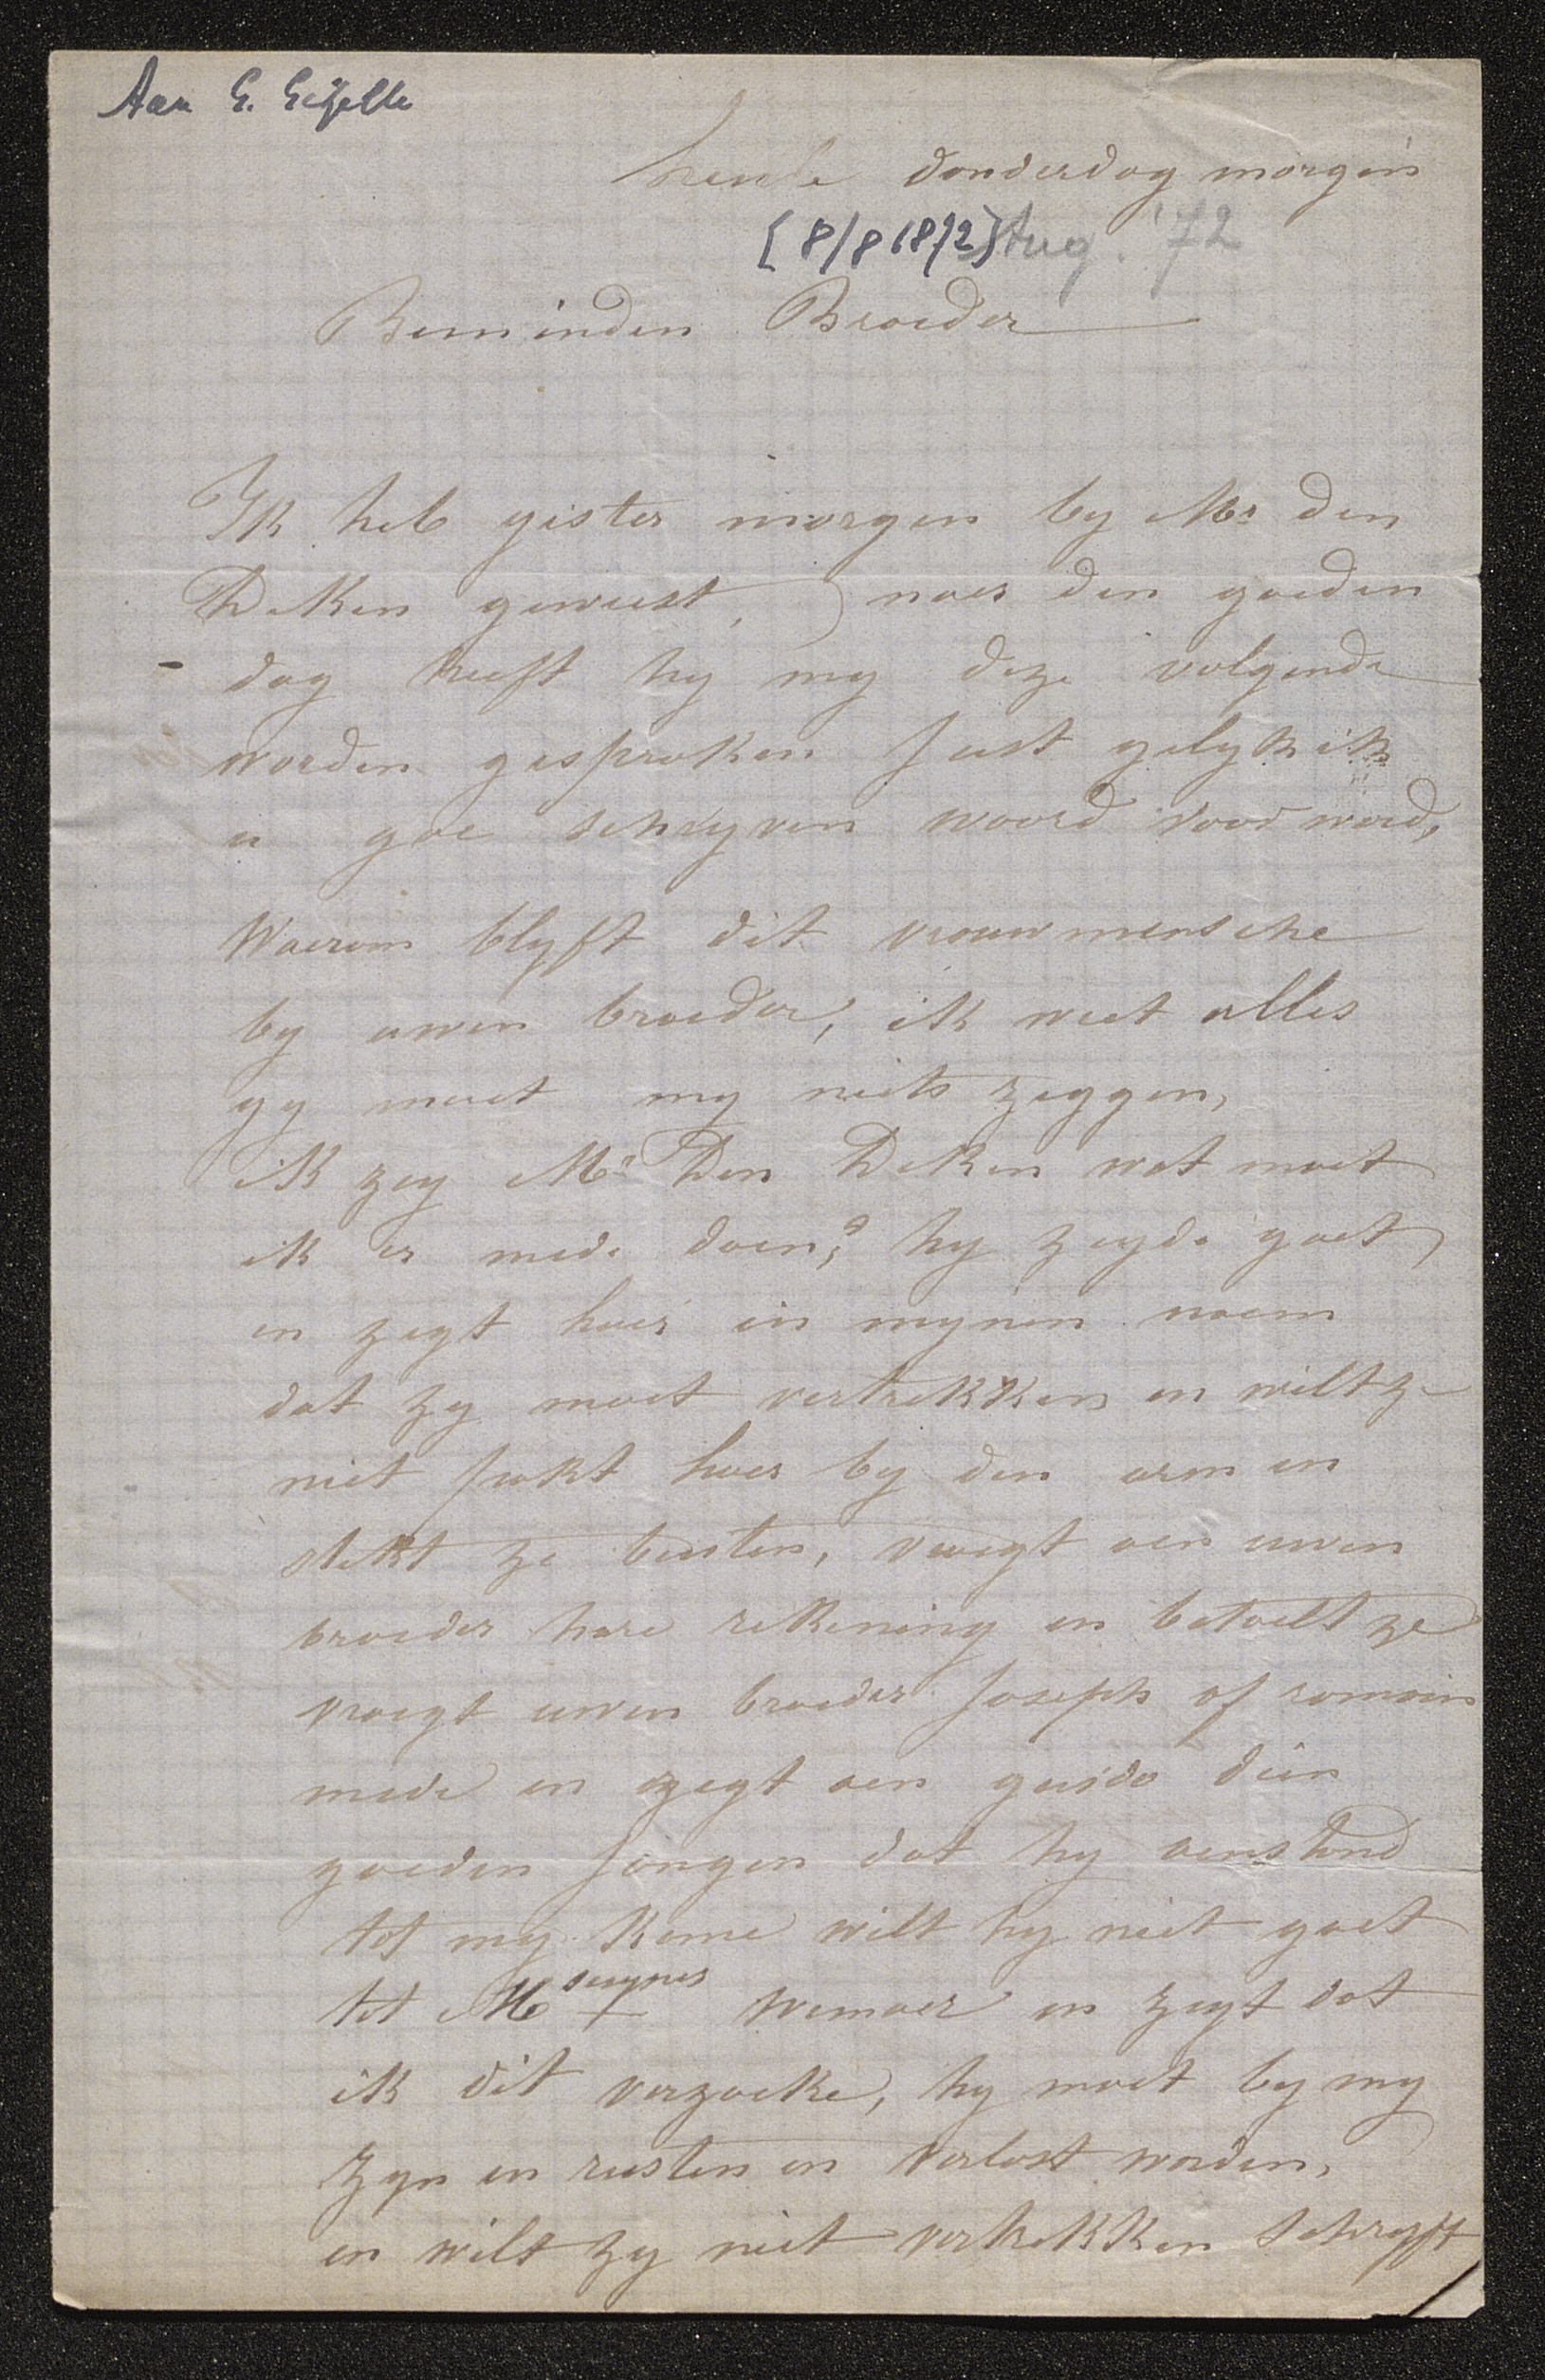 Aan G. Gezelle
heule donderdag morgen
[8/8 1872] Aug. '72
Beminden Broeder
Ik heb gister morgen by Mr den
Deken geweest, naer den goeden
dag heeft hy my deze volgende
worden gesproken Just gelyk ik
u gae schryven woord voor word,
Waerom blyft dit vrouwmensche
by uwen broeder, ik weet alles
gy moet my niets zeggen,
ik zeg Mr Den Deken wat moet
ik er mede doen? hy zeyde gaet,
en zegt haer in mynen naem
dat zy moet vertrekken en wilt ze
niet pakt haer by den arm en
stekt ze buiten, vraegt aen uwen
broeder hare rekening en betaelt ze
vraegt uwen broeder Joseph of romain
mede en zegt aen guido dien
goeden Jongen dat hy aenstond
tot my kome wilt hy niet gaet
tot Mseigner Wemaer en zegt dat
ik dit verzoeke, hy moet by my
zyn en rusten en verlost worden,
en wilt zy niet vertrekken schryft